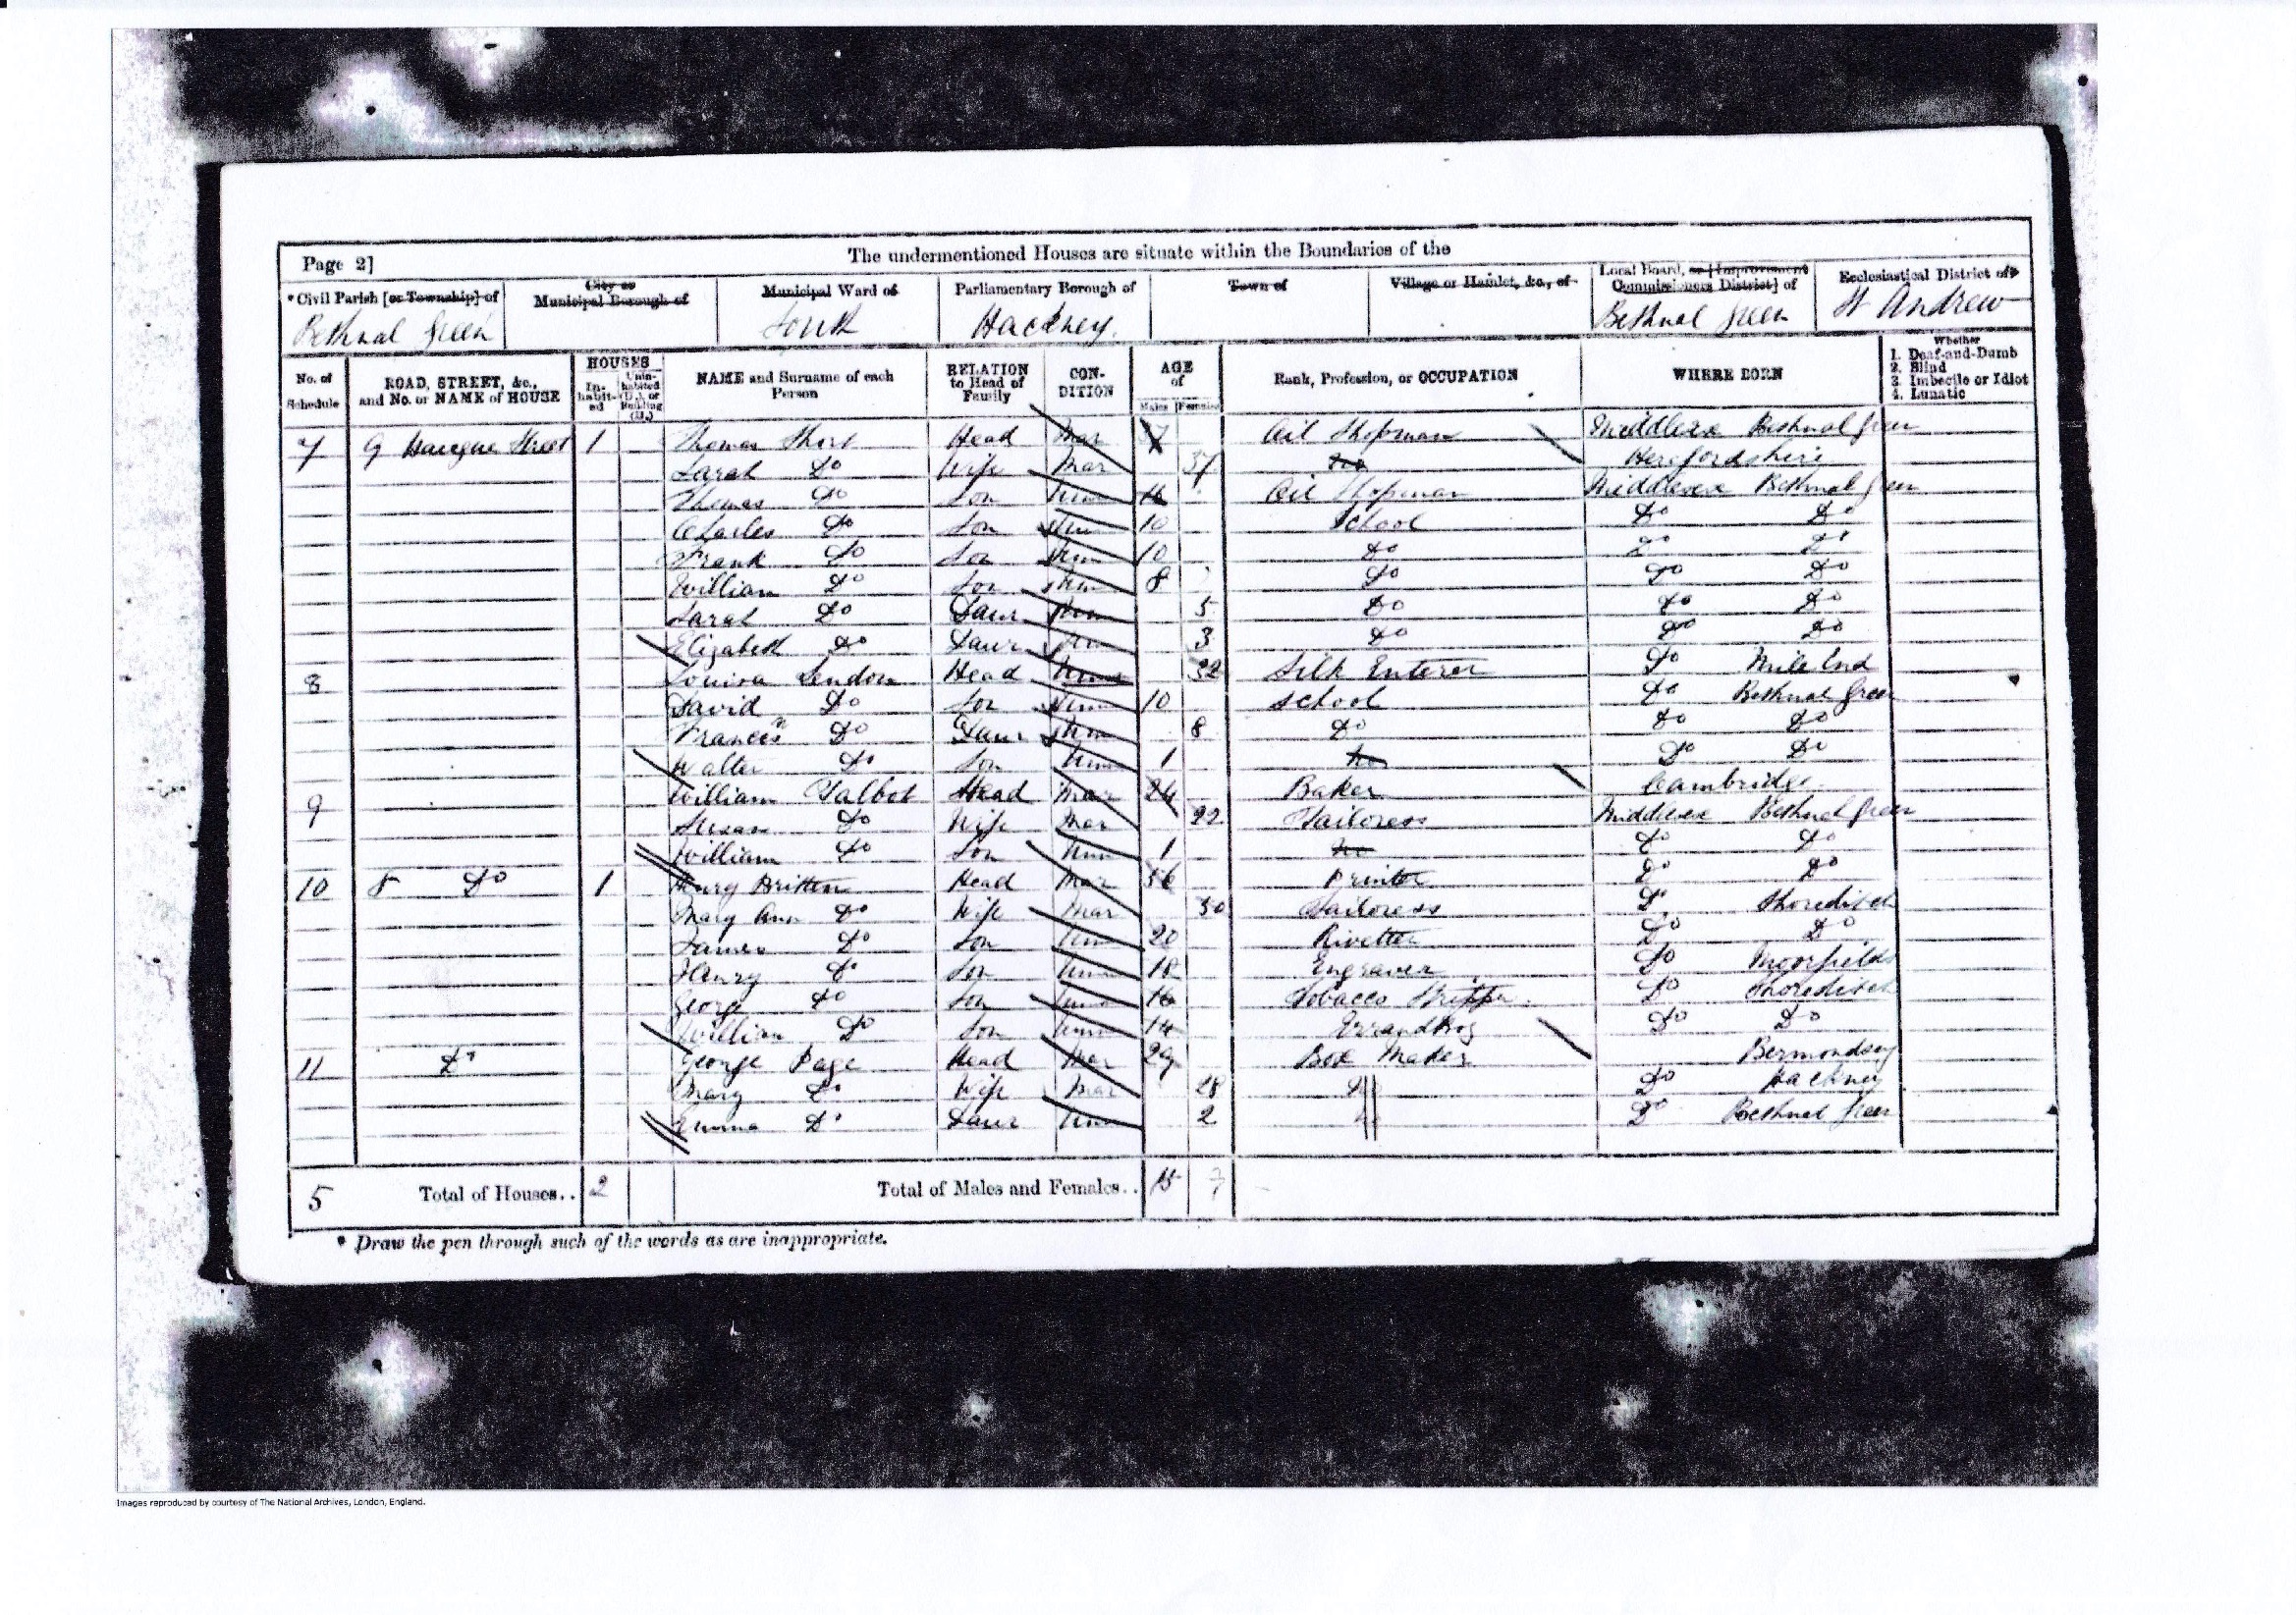 The undermentioned Houses are situate within the Boundaries of the
Page 2]
*Civil Parish [or Township] of
City or Municipal Borough of
Municipal Ward of
Parliamentary Borough of
Town of
Village or Hamlet, &c., of
Local Board, or [Improvement Commissioners District] of
Ecclesiastical District of
Bethnal Green South Hackney Bethnal Green St Andrew
No. of Schedule
ROAD, STREET, &c., and No. or NAME of HOUSE
HOUSES
In-habit-ed
Unin-habited (U.), or Building (B.)
NAME and Surname of each Person
RELATION to Head of Family
CON-DITION
AGE of
Males Females
Rank, Profession, or OCCUPATION
WHERE BORN
Whether
1. Deaf-and-Dumb
2. Blind
3. Imbecile or Idiot
4. Lunatic
7 9 Street 1 Thomas Short Head Mar 37 Oil Shopman Middlesex Bethnal Green
Sarah Do Wife Mar 37 Herefordshire
Thomas Do Son Unm Oil Shopman Middlesex Bethnal Green
Charles Do Son Unm 10 School Do Do
Frank Do Son Unm 10 Do Do Do
William Do Son Unm 8 Do Do Do
Sarah Do Daur Unm 5 Do Do Do
Elizabeth Do Daur Unm 3 Do Do Do
8 Louisa Head Unm 32 Silk Enterer Do Mile End
David Do Son Unm 10 School Do Bethnal Green
Frances Do Daur Unm 8 Do Do Do
Walter Do Son Unm 1 Do Do
9 William Talbot Head Mar 24 Baker Cambridge
Susan Do Wife Mar 22 Tailoress Middlesex Bethnal Green
William Do Son Unm 1 Do Do
10 8 Do 1 Henry Britten Head Mar 56 Printer Do Do
Mary Ann Do Wife Mar 50 Tailoress Do Shoreditch
James Do Son Unm 20 Rivetter Do Do
Henry Do Son Unm 18 Engraver Do Moorfields
George Do Son Unm 16 Tobacco Stripper Do Shoreditch
William Do Son Unm 14 Errand Boy Do Do
11 Do George Page Head Mar 29 Box Maker Bermondsey
Mary Do Wife Mar 28 Do Hackney
Emma Do Daur Unm 2 Do Bethnal Green
5 Total of Houses.. 2 Total of Males and Females.. 15 7
* Draw the pen through such of the words as are inappropriate.
Images reproduced by courtesy of The National Archives, London, England.